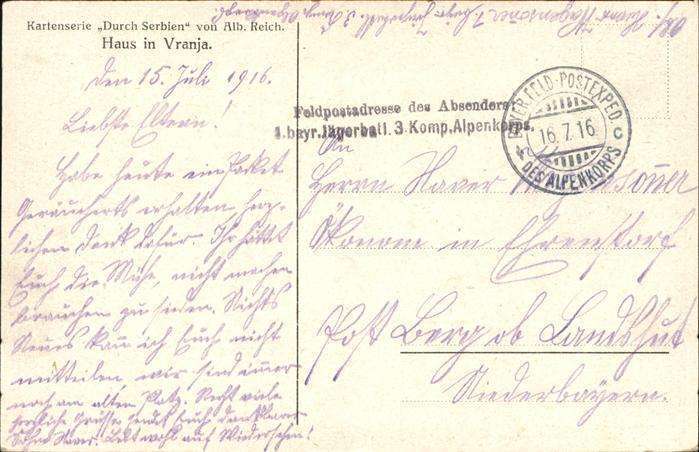 Kartenserie „Durch Serbien“ von Alb. Reich.
Haus in Vranja.
Den 15. Juli 1916.
Liebste Eltern!
Habe heute ein Paket
Geräuchertes erhalten herz-
lichen Dank dafür. Ihr hättet
Euch die Mühe, nicht machen
brauchen zu sieden. Nichts
Neues kann ich Euch nicht
mitteilen, wir sind immer
noch am alten Platz. Recht viele
herzliche Grüsse sendet Euch dankbarer
Sohn Xaver. Lebt wohl auf Wiedersehen!
Feldpostadresse des Absenders
1.bayr.Jägerbatl. 3.Komp.Alpenkorps.
BAYER.FELD-POSTEXPED.
16.7.16
C
DES ALPENKORPS
An
Herrn Xaver
Ökonom in Ehrenstorf
Post Berg ob Landshut
Niederbayern.